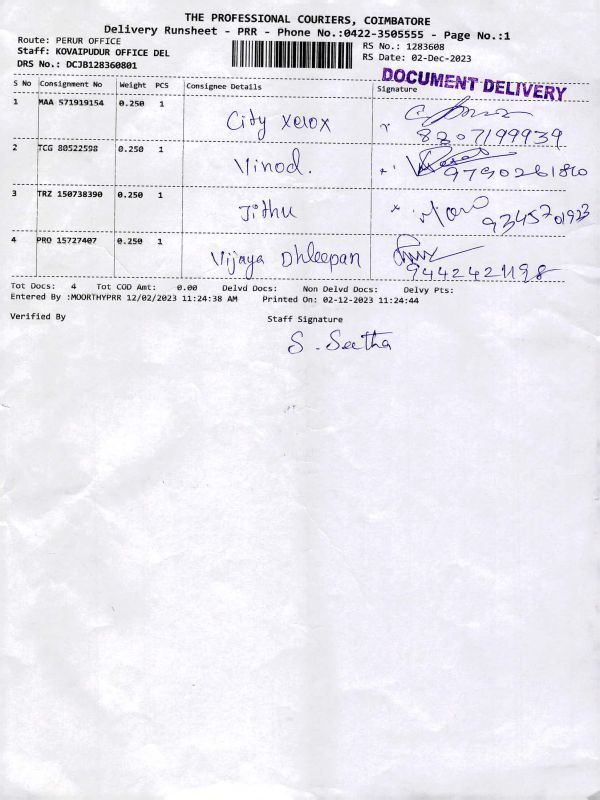 THE PROFESSIONAL COURIERS, COIMBATORE
Delivery Runsheet - PRR - Phone No.:0422-3505555 - Page No.:1
Route: PERUR OFFICE
Staff: KOVAIPUDUR OFFICE DEL
DRS No.: DCJB128360801
RS No.: 1283608
RS Date: 02-Dec-2023
DOCUMENT DELIVERY
S No Consignment No Weight PCS Consignee Details Signature
1 MAA 571919154 0.250 1 City Xerox 8207199939
2 TCG 80522598 0.250 1 Vinod.
3 TRZ 150738390 0.250 1 Jithu
4 PRO 15727407 0.250 1 Vijaya Dhleepan
Tot Docs: 4 Tot COD Amt: 0.00 Delvd Docs: Non Delvd Docs: Delvy Pts:
Entered By :MOORTHYPRR 12/02/2023 11:24:38 AM Printed On: 02-12-2023 11:24:44
Verified By Staff Signature
S. Seetha